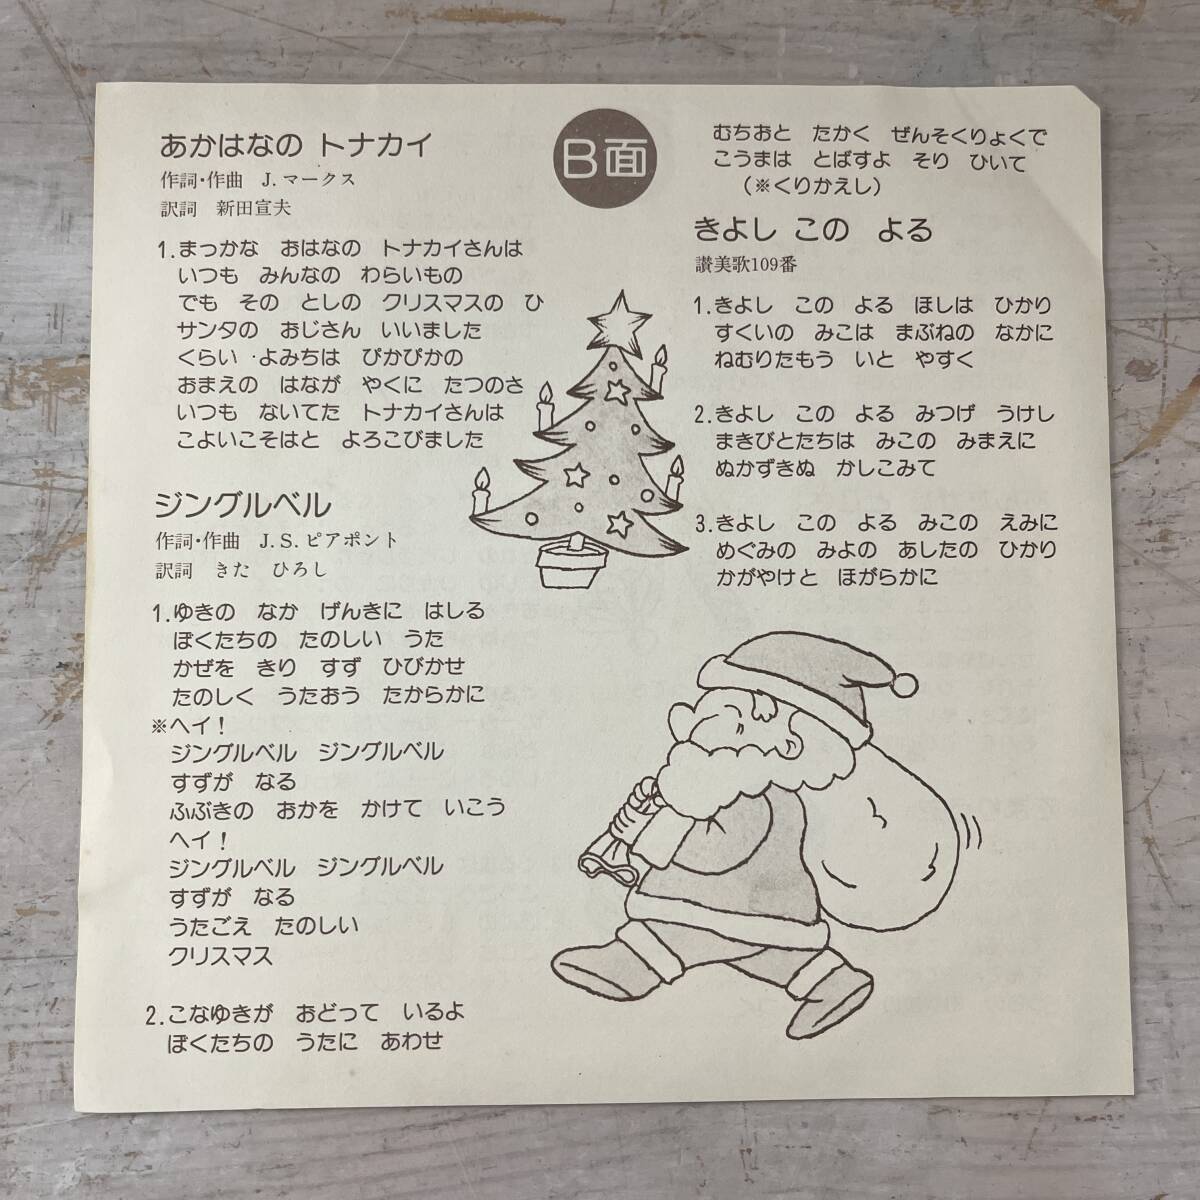 B面
あかはなの トナカイ
作詞・作曲 J.マークス
訳詞 新田宣夫
1.まっかな おはなの トナカイさんは
いつも みんなの わらいもの
でも その としの クリスマスの ひ
サンタの おじさん いいました
くらい よみちは ぴかぴかの
おまえの はなが やくに たつのさ
いつも ないてた トナカイさんは
こよいこそはと よろこびました
ジングルベル
作詞・作曲 J.S.ピアポント
訳詞 きた ひろし
1.ゆきの なか げんきに はしる
ぼくたちの たのしい うた
かぜを きり すず ひびかせ
たのしく うたおう たからかに
※ヘイ!
ジングルベル ジングルベル
すずが なる
ふぶきの おかを かけて いこう
ヘイ!
ジングルベル ジングルベル
すずが なる
うたごえ たのしい
クリスマス
2.こなゆきが おどって いるよ
ぼくたちの うたに あわせ
むちおと たかく ぜんそくりょくで
こうまは とばすよ そり ひいて
(※くりかえし)
きよし この よる
讃美歌109番
1.きよし この よる ほしは ひかり
すくいの みこは まぶねの なかに
ねむりたもう いと やすく
2.きよし この よる みつげ うけし
まきびとたちは みこの みまえに
ぬかずきぬ かしこみて
3.きよし この よる みこの えみに
めぐみの みよの あしたの ひかり
かがやけと ほがらかに